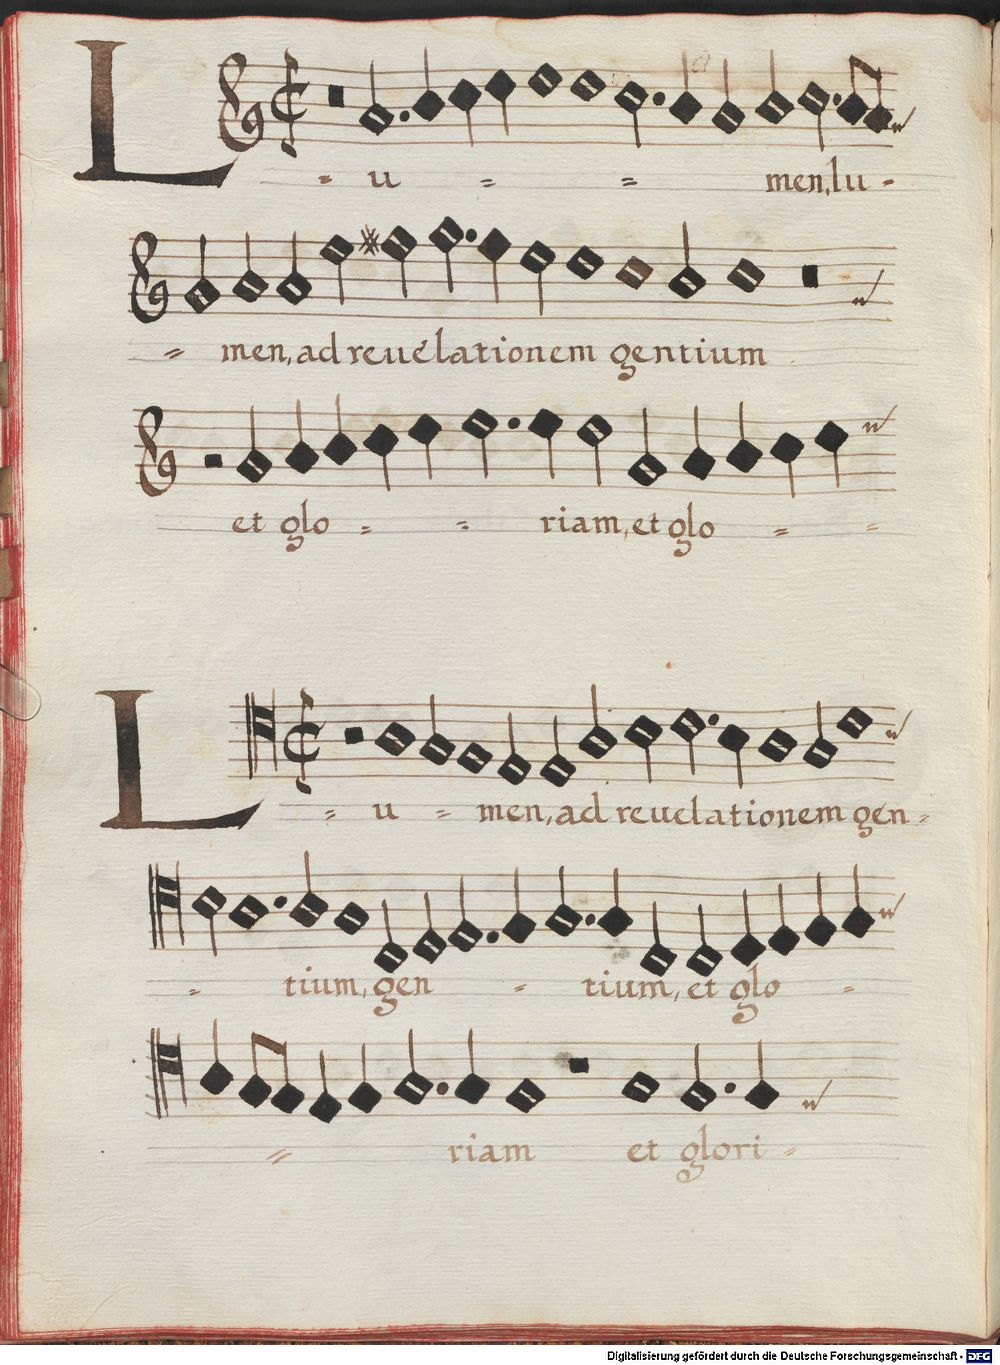 Lu = = men, lu =
= men, ad reuélationem gentium
et glo = = riam, et glo = =
Lu = men, ad reuelationem gen =
= tium, gen = tium, et glo =
= riam et glori =
Digitalisierung gefördert durch die Deutsche Forschungsgemeinschaft - DFG